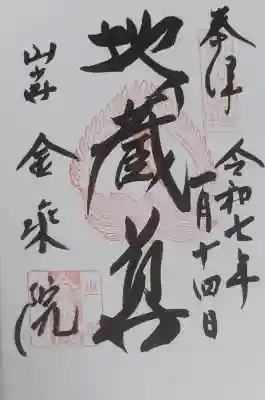 奉拝
令和七年
一月十四日
地蔵尊
山寺
金乘院